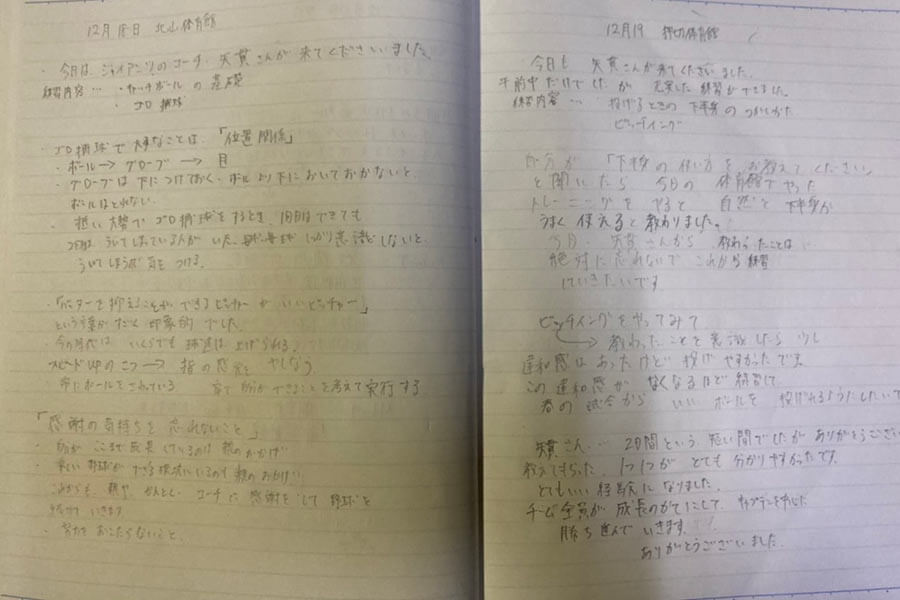 12月18日 北山体育館
・今日は、ジャイアンツのコーチ、矢貫さんが来てくださいました。
練習内容… ・キャッチボールの基礎
・ゴロ捕球
・ゴロ捕球で大事なことは、「位置関係」
・ボール→グローブ→目
・グローブは下につけておく。ボールより下においておかないと
ボールはとれない。
・低い大勢でゴロ捕球をするとき、1回目はできても
2回目、ういてしまっている人がいた。しっかり意識しないと、
ういてしまうので気をつける。
・「バッターを抑えることができるピッチャーがいいピッチャー」
という言葉がすごく印象的でした。
今の時代は、いくらでも球速は上げられる。
スピードUPのこつ→指の感覚をやしなう
常にボールをさわっている 家で自分ができることを考えて実行する
「感謝の気持ちを忘れないこと」
・自分がここまで成長しているのは親のおかげ
・楽しい野球ができる環境にいるのも親のおかげ
これからも、親や、かんとく、コーチに感謝をして野球を
続けていきます
・努力をおこたらないこと。
12月19 押切体育館
今日も 矢貫さんが来てくださいました。
午前中だけでしたが充実した練習ができました。
練習内容… 投げるときの下半身のつかいかた
ピッチィング
自分が「下半身の使い方をお教えてください」
と聞いたら 今日の体育館でやった
トレーニングをやると自然と下半身が
うまく使えると教わりました。
今日、矢貫さんから教わったことは
絶対に忘れないでこれから練習
していきたいです
ピッチィングをやってみて
→教わったことを意識したら少し
違和感はあったけど投げやすかったです。
この違和感がなくなるほど練習して、
春の試合からいいボールを投げれるようにしたいで
矢貫さん… 2日間という短い間でしたがありがとうござい
教えてもらった、1つ1つがとても分かりやすかったです。
とてもいい経験になりました。
チーム全員が成長のかてにして、キャプテンを中心に
勝ち進んでいきます。
ありがとうございました。